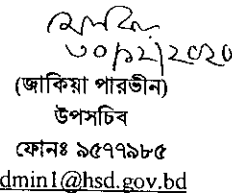 ৩০/১২/২০২০
(জাকিয়া পারভীন)
উপসচিব
ফোনঃ ৯৫৭৭৯৮৫
dmin1@hsd.gov.bd